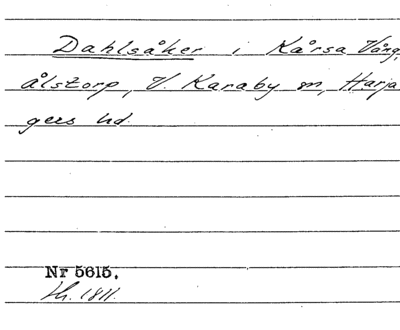 Dahlsåker i Kårsa Vång,
Ålstorp, V. Karaby sn, Harja
gers hd.
Nr 5615.
Th. 1811.